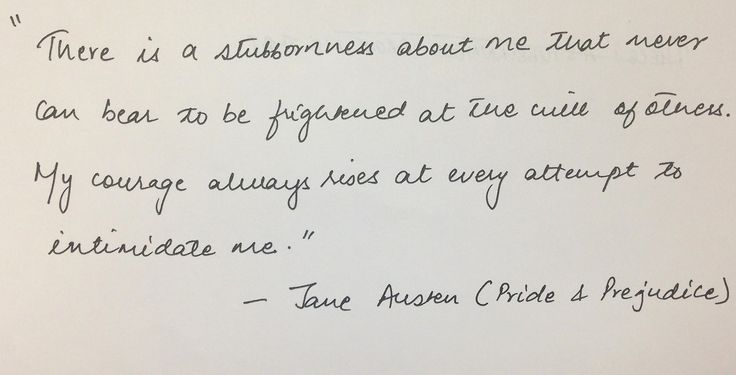 "There is a stubbornness about me that never
can bear to be frightened at the will of others.
My courage always rises at every attempt to
intimidate me."
- Jane Austen (Pride & Prejudice)